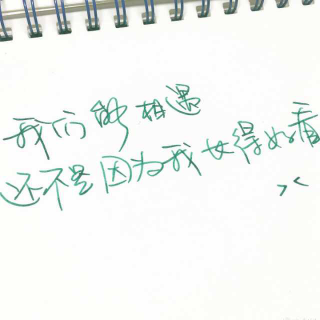 我们能相遇
还不是因为我长得好看
><